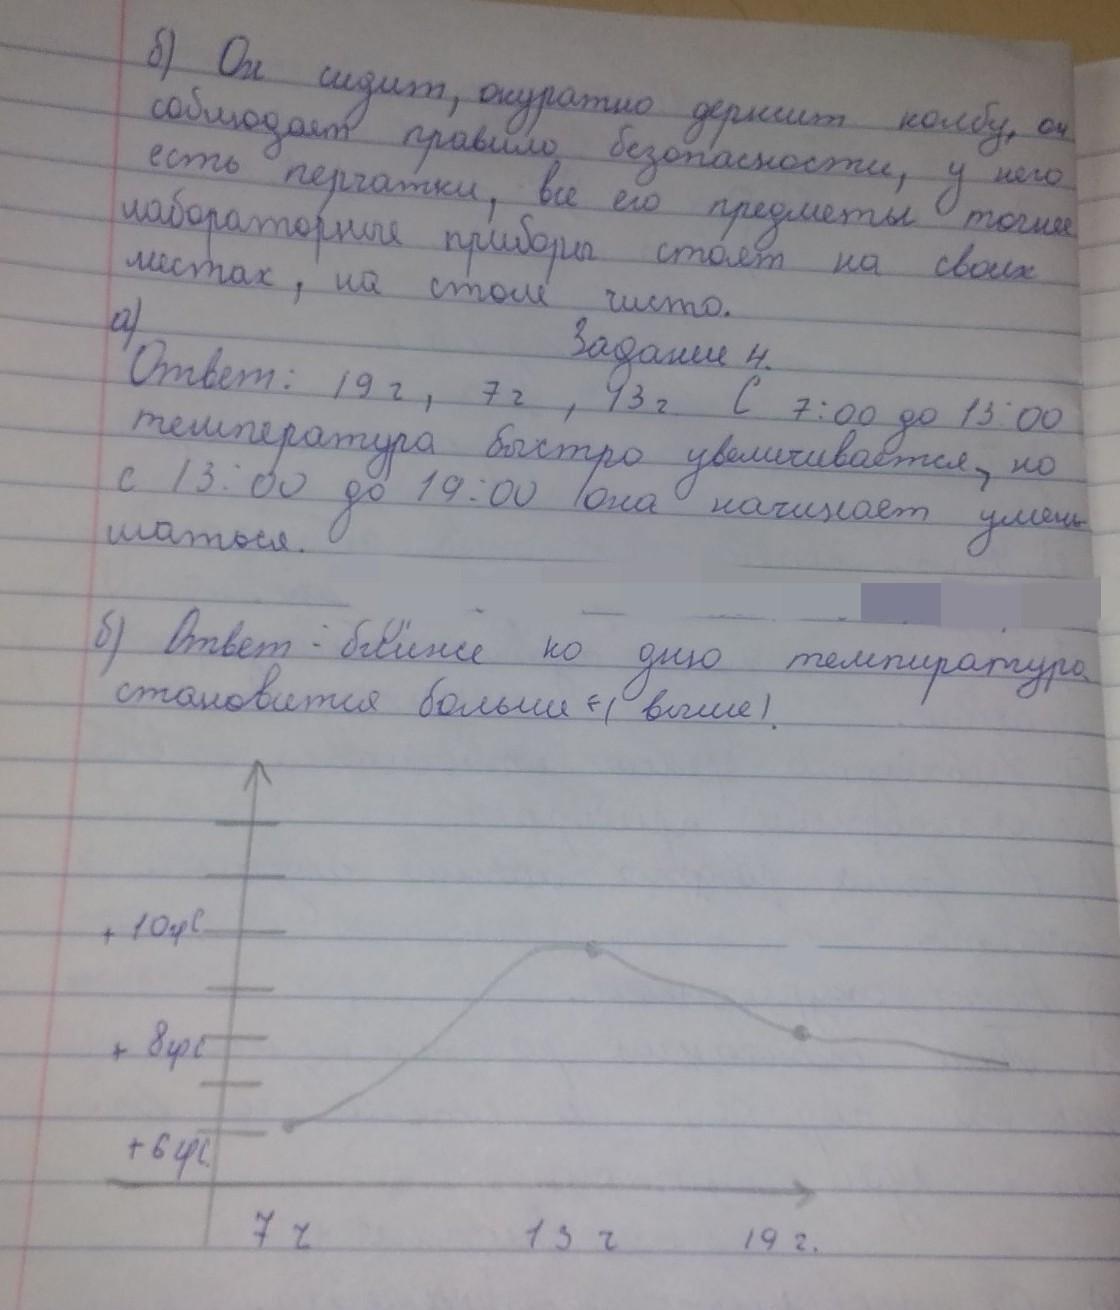 б) Он сидит, акуратно держит колбу, он
соблюдает правило безопасности, у него
есть перчатки, все его предметы точнее
лабораторные приборы стоят на своих
местах, на столе чисто.
а)
Задание 4.
Ответ: 19 г, 7 г, 13 г С 7:00 до 13:00
температура быстро увеличивается, но
с 13:00 до 19:00 она начинает умень
шаться.
б) Ответ: ближе ко дню темпиратура
становится больше (выше).
+ 10
+ 8
+ 6
7 ч 13 ч 19 ч.